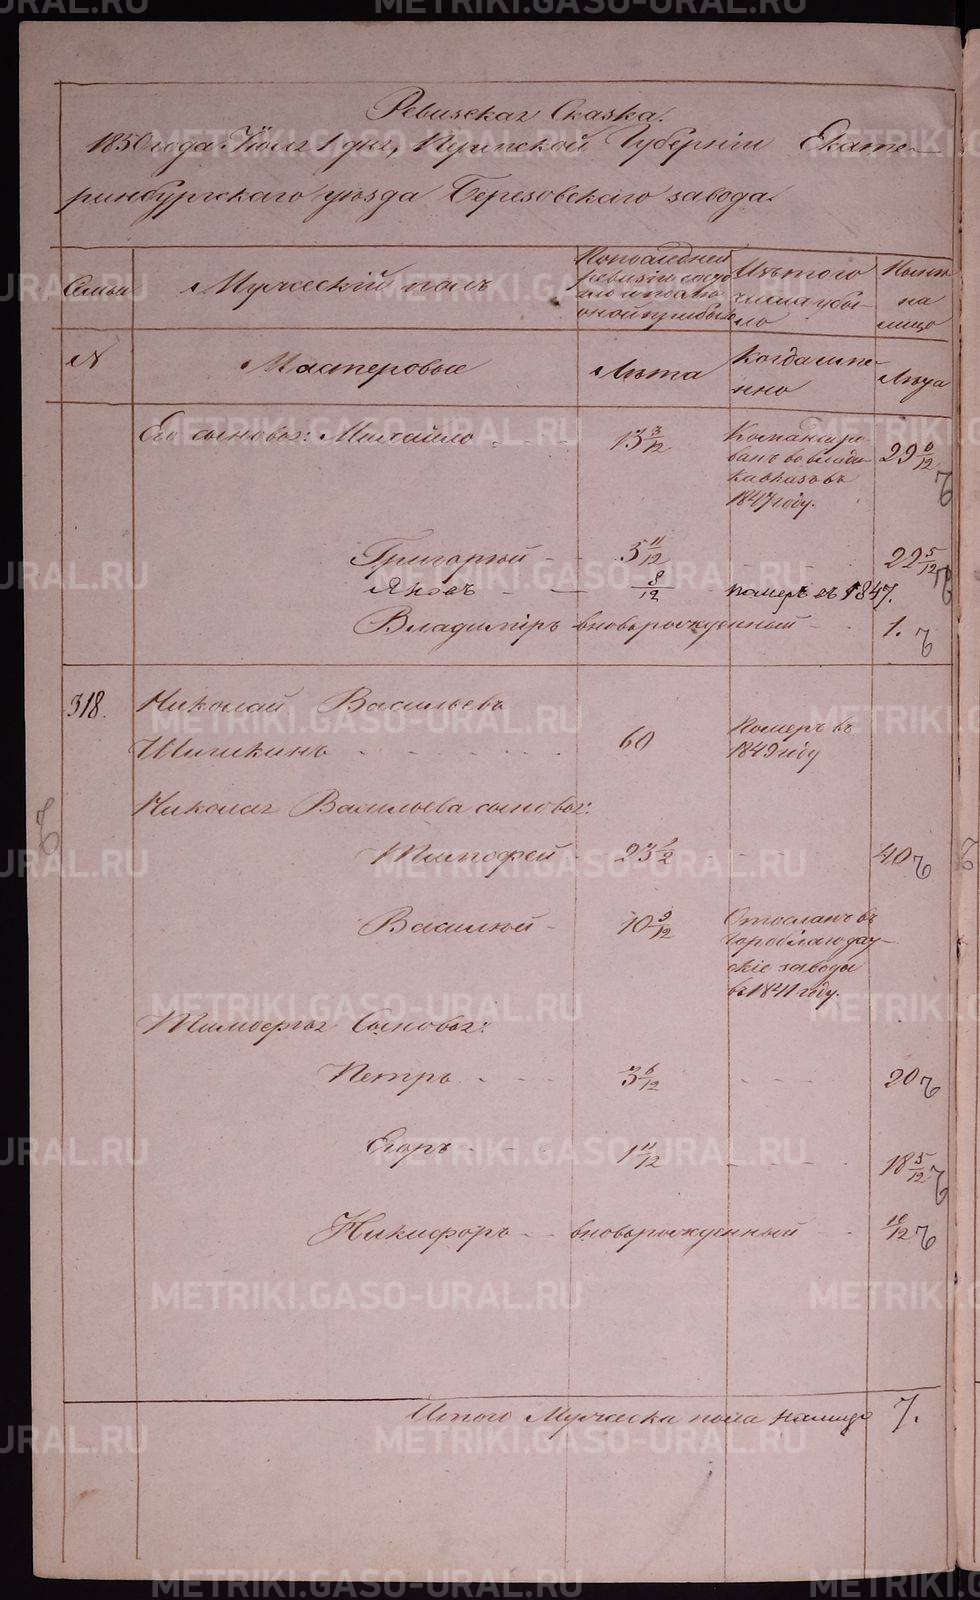 Ревизская Сказка.
1850 года Іюля 1 дня, Пермской Губерніи Екате-
ринбургскаго уѣзда Березовскаго завода.
Семьи
Мужескій полъ
По последней ревизіи состо
Изъ того числа убы-
ло
Нынѣ
на
лицо
N
Мастеровые
Лѣта
Когда име-
нно
Лѣта
Его сыновья: Михайло 13 3/12 Командиро
ванъ во влади-
кавказъ въ
1847 году. 29 6/12
Григорій 5 11/12 22 5/12
Яковъ 8/12 померъ въ 1847.
Владиміръ вновьрожденный 1.
318. Николай Васильевъ
Шишкинъ 60 Померъ въ
1849 году
Николая Васильева сыновья:
Тимофей 23 40
Василій 10 9/12 Отосланъ въ
Гороблагодат-
скіе заводы
въ 1841 году.
Тимофея Сыновья:
Петръ 3 6/12 20
Егоръ 1 11/12 18 5/12
Никифоръ вновьрожденный 10/12
Итого Мужеска пола налицо 7.
METRIKI.GASO-URAL.RU